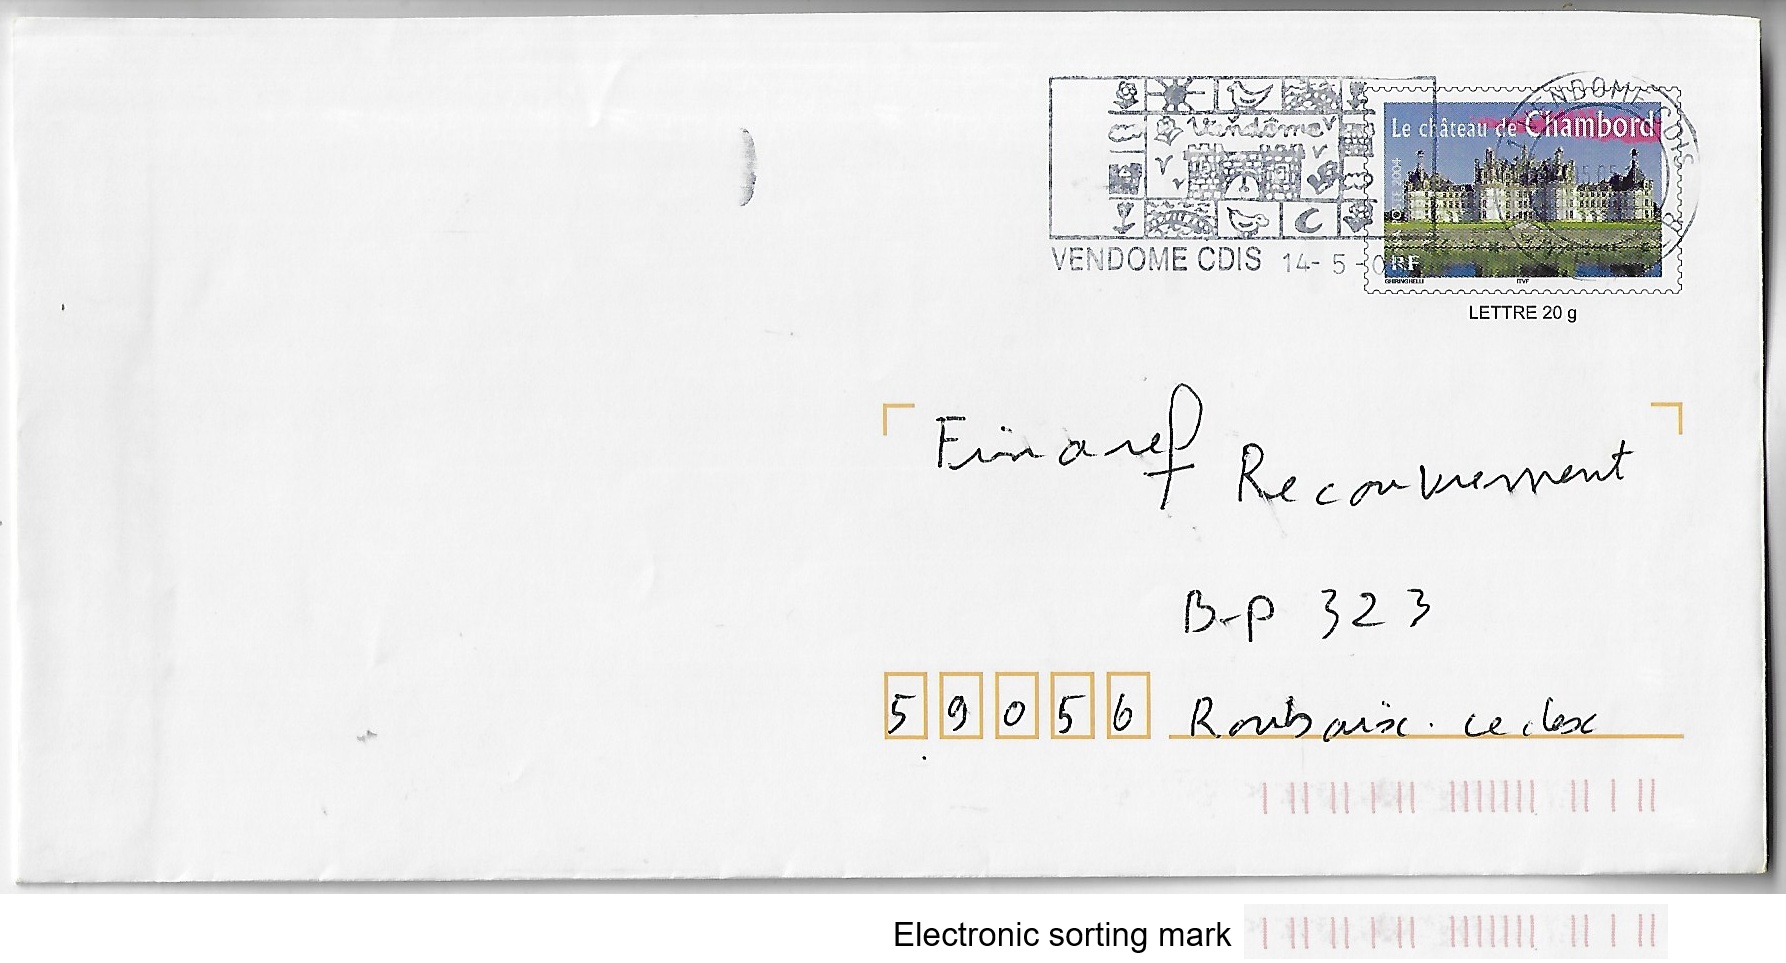 Vendôme
VENDOME CDIS 14-5-0
VENDOME CDIS
Le château de Chambord
LA POSTE 2004
RF
GHIRINGHELLI ITVF
LETTRE 20 g
Finaref Recouvrement
B-P 323
59056 Roubaix. cedex
Electronic sorting mark